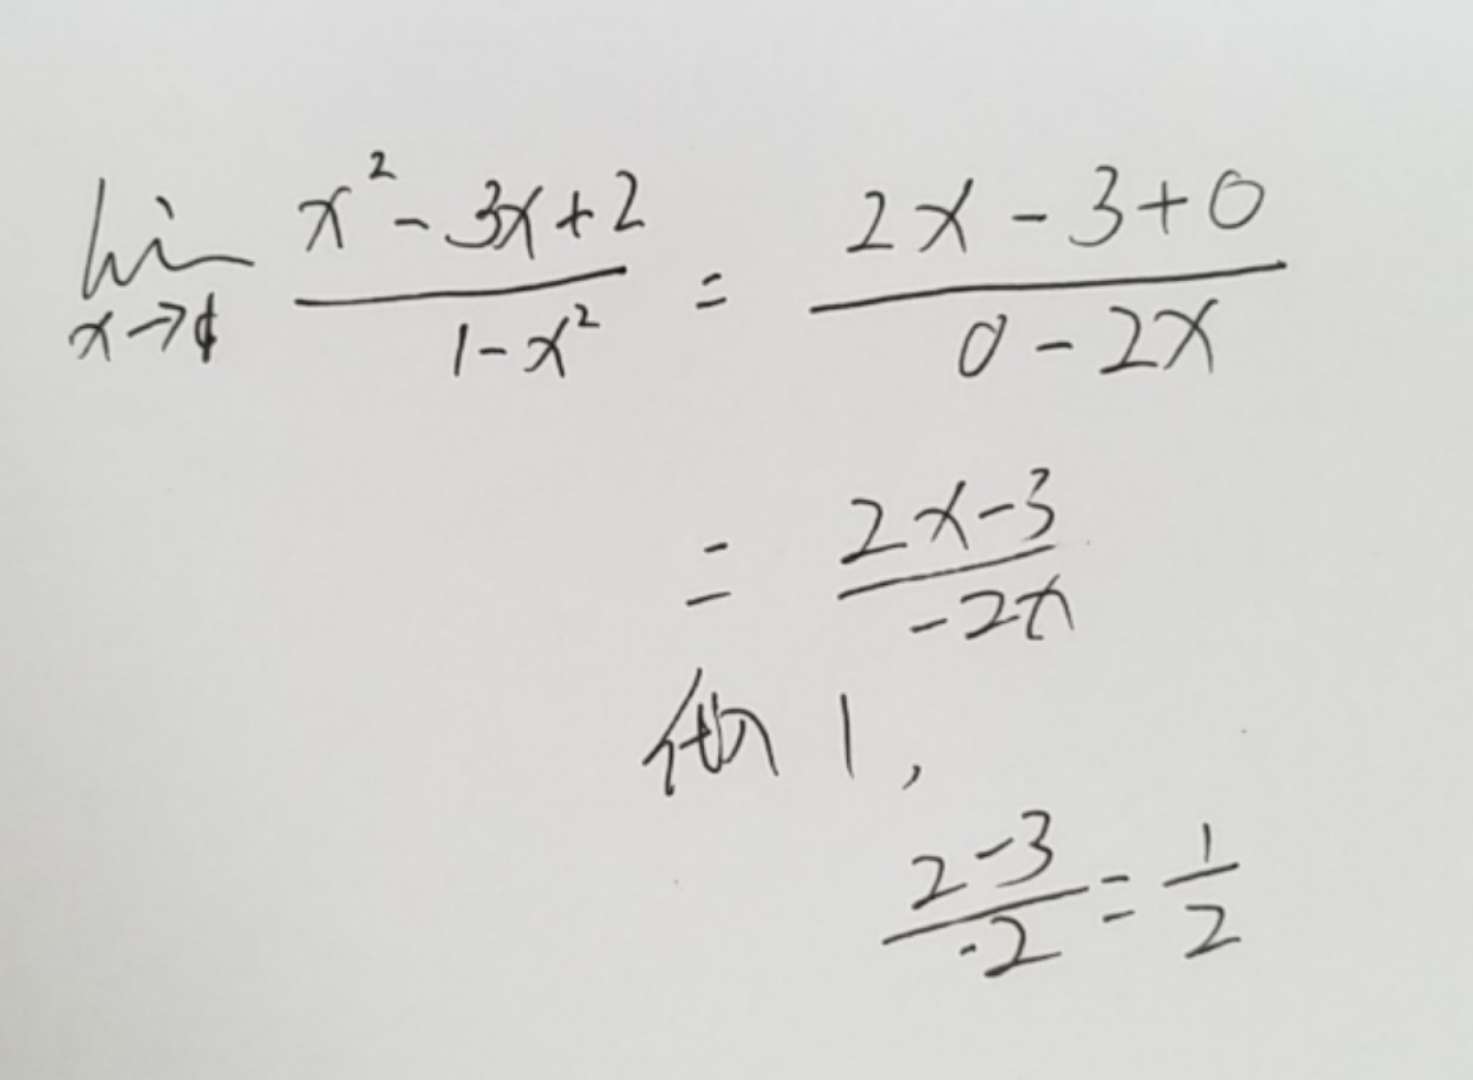 lim x→1 (x² - 3x + 2)/(1 - x²) = (2x - 3 + 0)/(0 - 2x)
= (2x - 3)/(-2x)
代入 1,
(2 - 3)/(-2) = 1/2